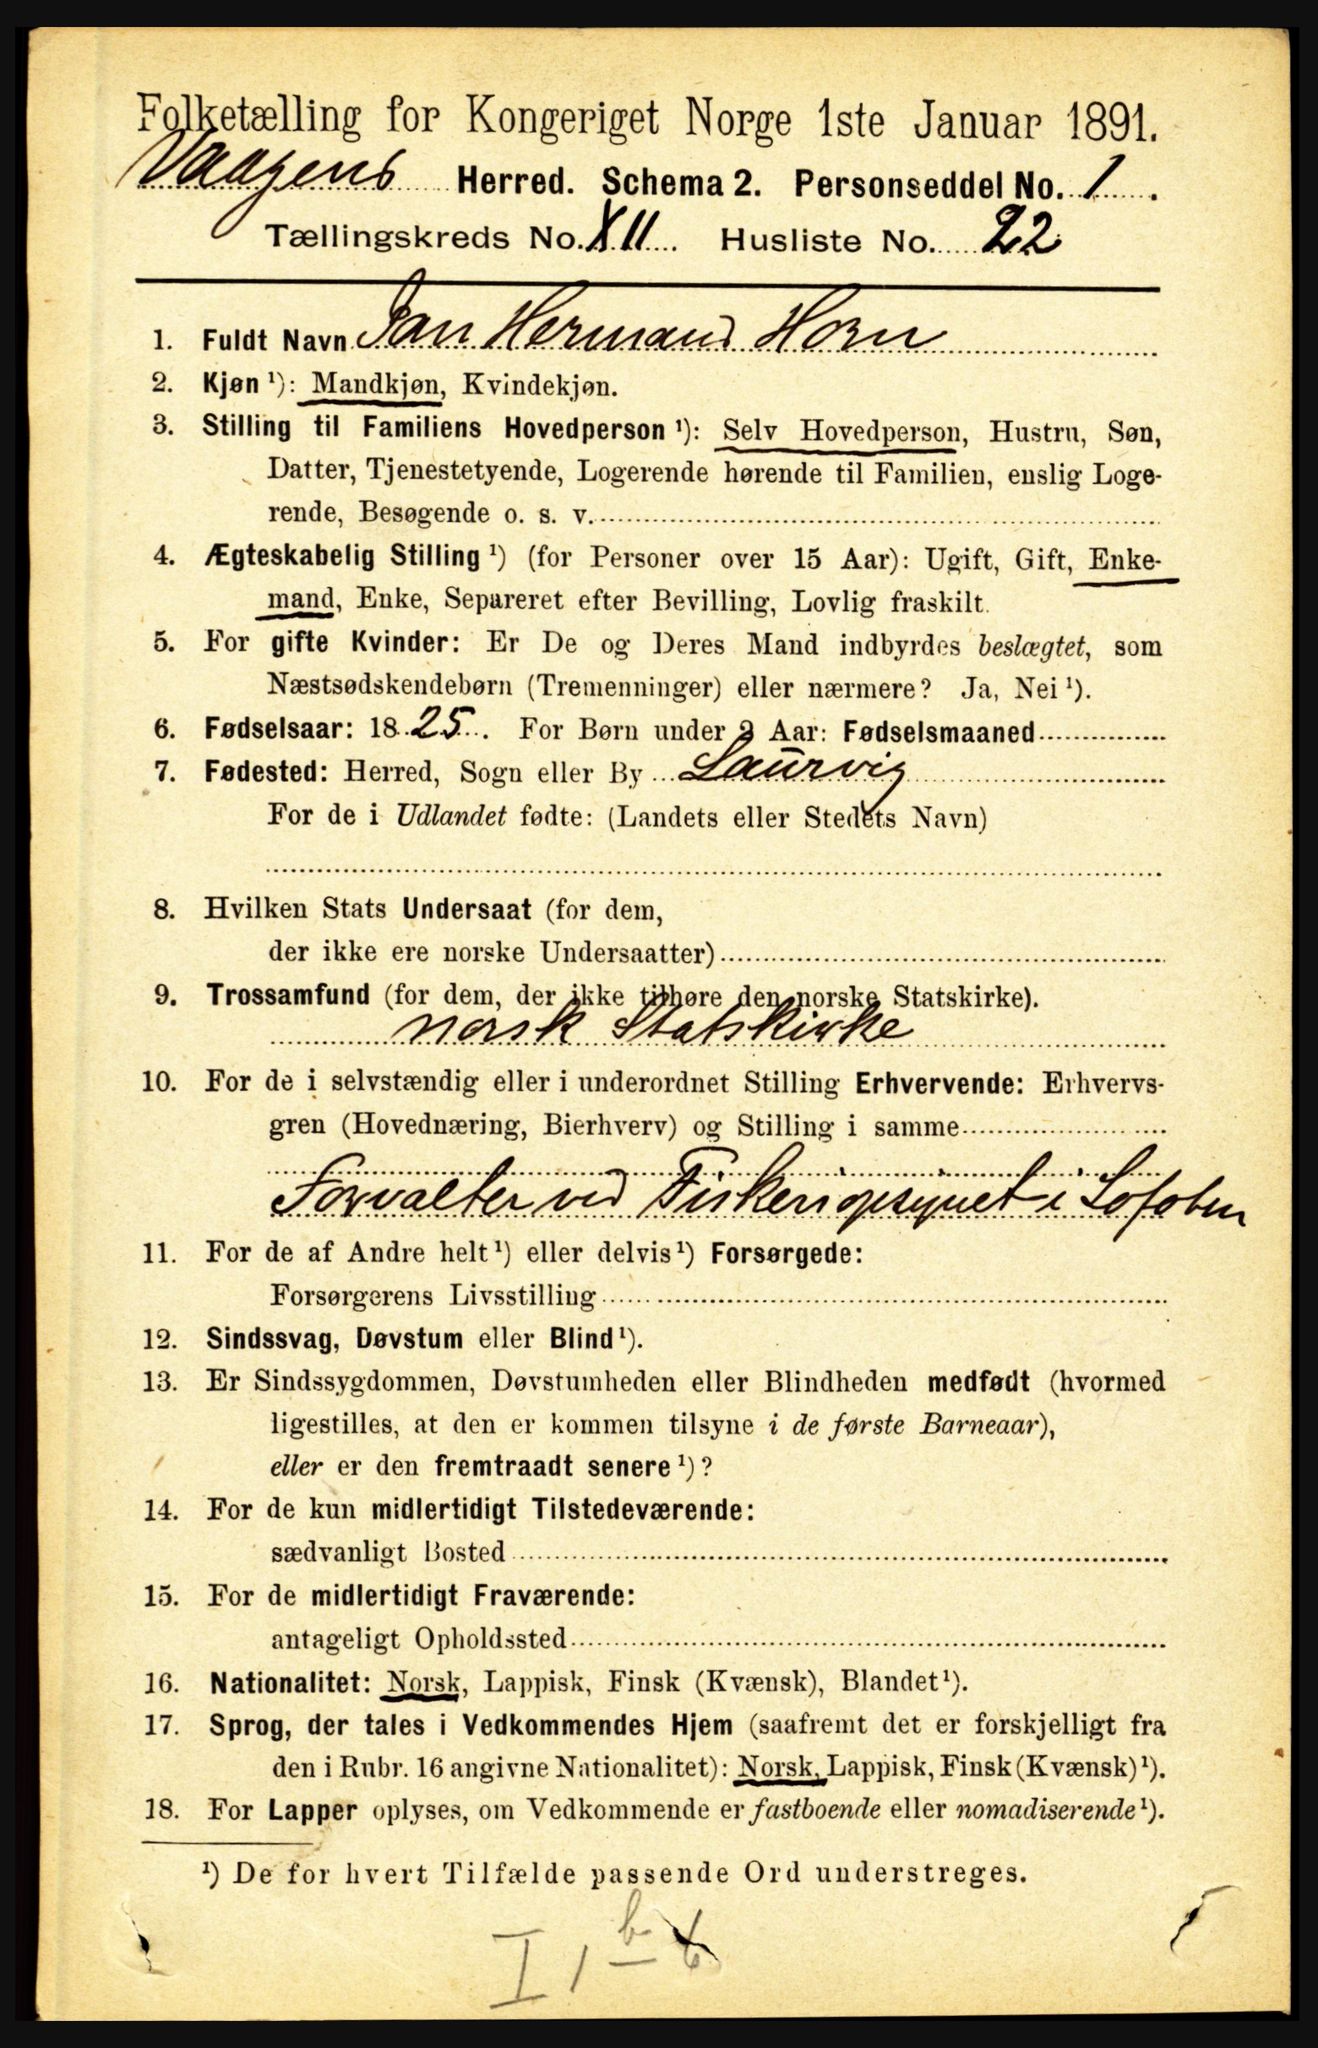 Folketælling for Kongeriget Norge 1ste Januar 1891.
Vaagens Herred. Schema 2. Personseddel No. 1.
Tællingskreds No. XII. Husliste No. 22
1. Fuldt Navn Jan Herman Horn
2. Kjøn ¹): Mandkjøn, Kvindekjøn.
3. Stilling til Familiens Hovedperson ¹): Selv Hovedperson, Hustru, Søn,
Datter, Tjenestetyende, Logerende hørende til Familien, enslig Loge-
rende, Besøgende o. s. v.
4. Ægteskabelig Stilling ¹) (for Personer over 15 Aar): Ugift, Gift, Enke-
mand, Enke, Separeret efter Bevilling, Lovlig fraskilt.
5. For gifte Kvinder: Er De og Deres Mand indbyrdes beslægtet, som
Næstsødskendebørn (Tremenninger) eller nærmere? Ja, Nei ¹).
6. Fødselsaar: 1825. For Børn under 2 Aar: Fødselsmaaned
7. Fødested: Herred, Sogn eller By Laurvig
For de i Udlandet fødte: (Landets eller Stedets Navn)
8. Hvilken Stats Undersaat (for dem,
der ikke ere norske Undersaatter)
9. Trossamfund (for dem, der ikke tilhøre den norske Statskirke).
norsk Statskirke
10. For de i selvstændig eller i underordnet Stilling Erhvervende: Erhvervs-
gren (Hovednæring, Bierhverv) og Stilling i samme
Forvalter ved Fiskeriopsynet i Lofoten
11. For de af Andre helt ¹) eller delvis ¹) Forsørgede:
Forsørgerens Livsstilling
12. Sindssvag, Døvstum eller Blind ¹).
13. Er Sindssygdommen, Døvstumheden eller Blindheden medfødt (hvormed
ligestilles, at den er kommen tilsyne i de første Barneaar),
eller er den fremtraadt senere ¹)?
14. For de kun midlertidigt Tilstedeværende:
sædvanligt Bosted
15. For de midlertidigt Fraværende:
antageligt Opholdssted
16. Nationalitet: Norsk, Lappisk, Finsk (Kvænsk), Blandet ¹).
17. Sprog, der tales i Vedkommendes Hjem (saafremt det er forskjelligt fra
den i Rubr. 16 angivne Nationalitet): Norsk, Lappisk, Finsk (Kvænsk) ¹).
18. For Lapper oplyses, om Vedkommende er fastboende eller nomadiserende ¹).
¹) De for hvert Tilfælde passende Ord understreges.
I 1 b